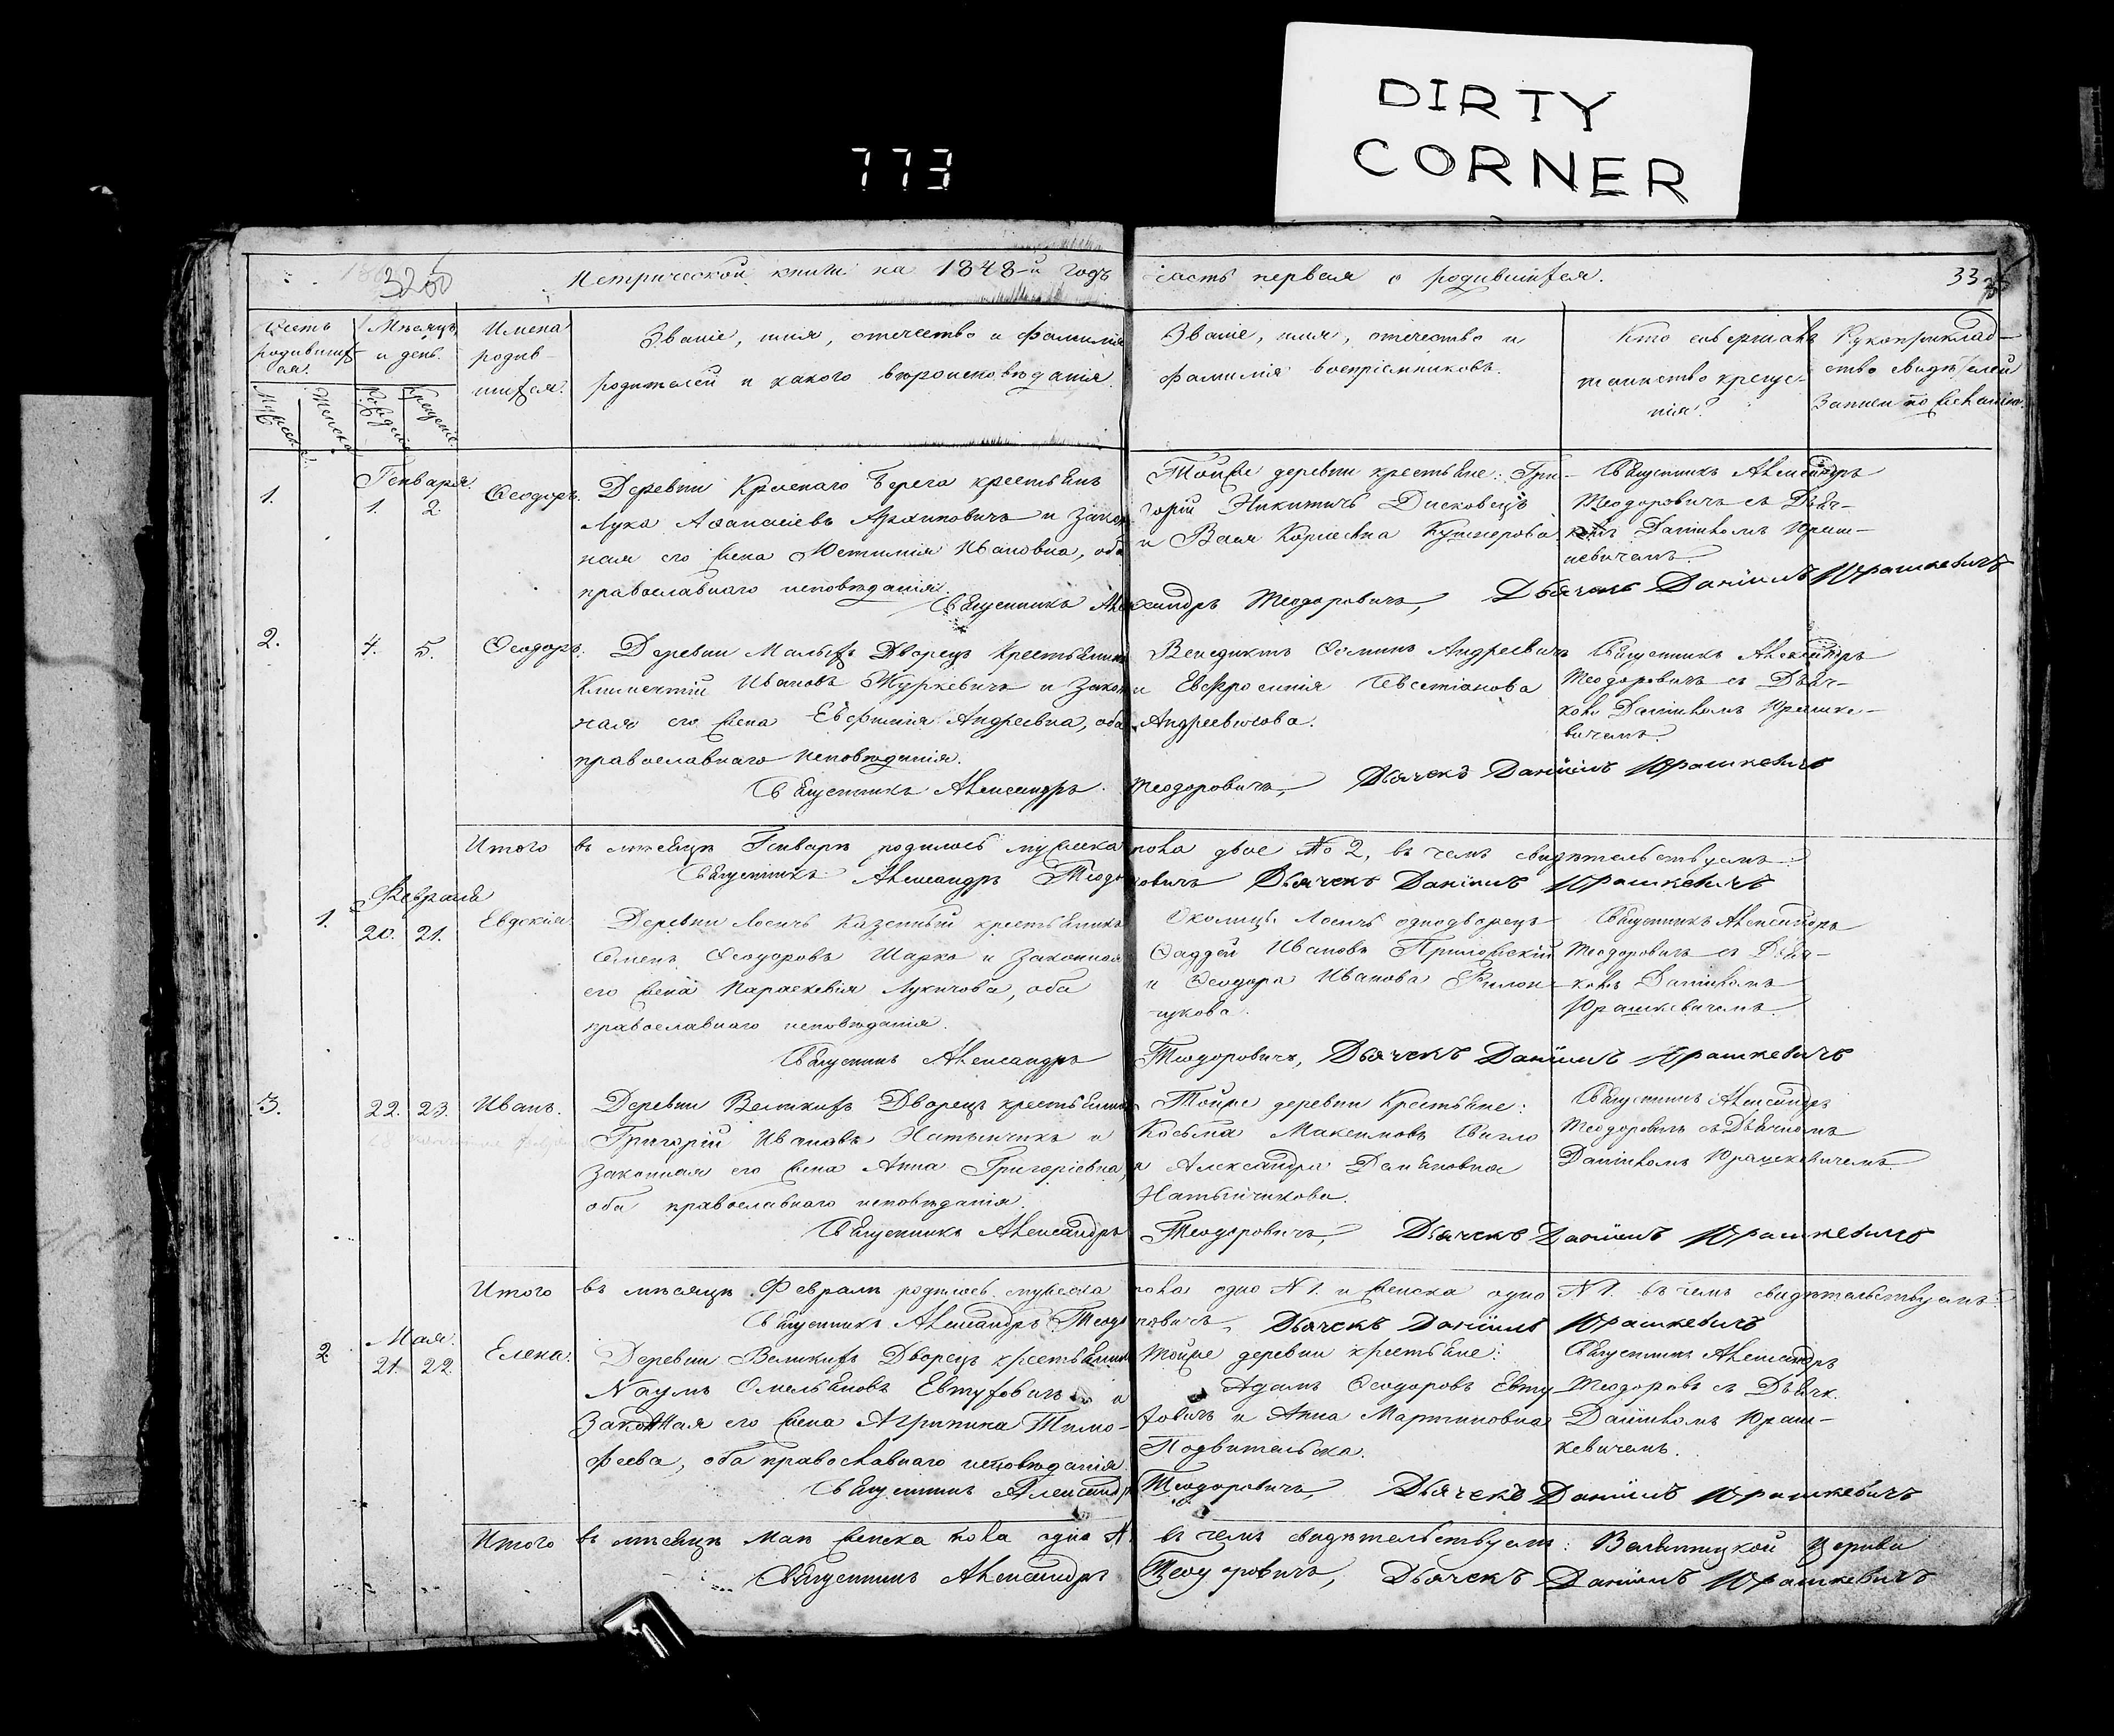 DIRTY
CORNER
773
Метрической книги на 1848-й годъ часть первая о родившихся.
33
Мѣсяцъ
и день.
Имена
родив-
шихся.
Званіе, имя, отечество и фамилія
родителей и какого вѣроисповѣданія.
Званіе, имя, отечество и
фамилія воспріемниковъ.
Кто совершалъ
таинство креще-
нія?
Рукоприклад-
ство свидѣтелей
записи по желанію.
Генваря.
1.
1.
2.
Ѳеодоръ.
Деревни Краснаго Берега крестьянъ
Лука Аѳанасіевъ и закон
ная его жена Іванова, оба
православнаго исповѣданія.
Тойже деревни крестьяне: Гри-
горій Никитичъ Дисковецъ
и
Священникъ Александръ
Теодоровичъ съ Дьяч-
комъ Даніиломъ Юраш-
кевичемъ.
Священникъ Александръ Теодоровичъ, Дьячекъ Даніилъ Юрашкевичъ
2.
4.
5.
Ѳеодоръ.
Деревни Малыхъ Дворецъ крестьянинъ
Климентій Ивановъ Журкевичъ и закон
ная его жена Евфимія Андреевна, оба
православнаго исповѣданія.
Венедиктъ Андреевичъ
и Евфросинія
Андреевичова.
Священникъ Александръ
Теодоровичъ съ Дьяч-
комъ Даніиломъ Юрашке-
вичемъ.
Священникъ Александръ Теодоровичъ, Дьячекъ Даніилъ Юрашкевичъ
Итого въ мѣсяцѣ Генварѣ родилось мужеска пола двое №о 2, въ чемъ свидѣтельствуемъ:
Священникъ Александръ Теодоровичъ Дьячекъ Даніилъ Юрашкевичъ
Февраля
1.
20.
21.
Евдокія
Деревни Лосичъ казенный крестьянинъ
Семенъ Ѳеодоровъ Шарко и законная
его жена Параскевія Лукичова, оба
православнаго исповѣданія.
Околицы Лосичъ однодворецъ
Ѳаддей Ивановъ
и Ѳеодора Иванова Филон-
чукова.
Священникъ Александръ
Теодоровичъ съ Дьяч-
комъ Даніиломъ
Юрашкевичемъ.
Священникъ Александръ Теодоровичъ, Дьячекъ Даніилъ Юрашкевичъ
3.
22.
23.
Иванъ.
Деревни Великихъ Дворецъ крестьянинъ
Григорій Ивановъ Натынчикъ и
законная его жена Анна Григоріевна,
оба православнаго исповѣданія.
Тойже деревни крестьяне:
Косьма Максимовъ
и Александра Демьяновна
Натынчикова.
Священникъ Александръ
Теодоровичъ съ Дьячкомъ
Даніиломъ Юрашкевичемъ
Священникъ Александръ Теодоровичъ, Дьячекъ Даніилъ Юрашкевичъ
Итого въ мѣсяцѣ Февралѣ родилось мужеска пола одно N 1. и женска одно N 1. въ чемъ свидѣтельствуемъ:
Священникъ Александръ Теодоровичъ, Дьячекъ Даніилъ Юрашкевичъ
Мая.
2
21.
22.
Елена.
Деревни Великихъ Дворецъ крестьянинъ
Наумъ Омельяновъ Евтуховичъ и
законная его жена Агрипина Тимо-
феева, оба православнаго исповѣданія.
Тойже деревни крестьяне:
Адамъ Ѳеодоровъ Евту
ховичъ и Анна Мартиновна
Священникъ Александръ
Теодоровъ съ Дьячк.
Даніиломъ Юраш-
кевичемъ.
Священникъ Александръ Теодоровичъ, Дьячекъ Даніилъ Юрашкевичъ
Итого въ мѣсяцѣ Маѣ женска пола одно въ чемъ свидѣтельствуемъ: церкви
Священникъ Александръ Теодоровичъ, Дьячекъ Даніилъ Юрашкевичъ